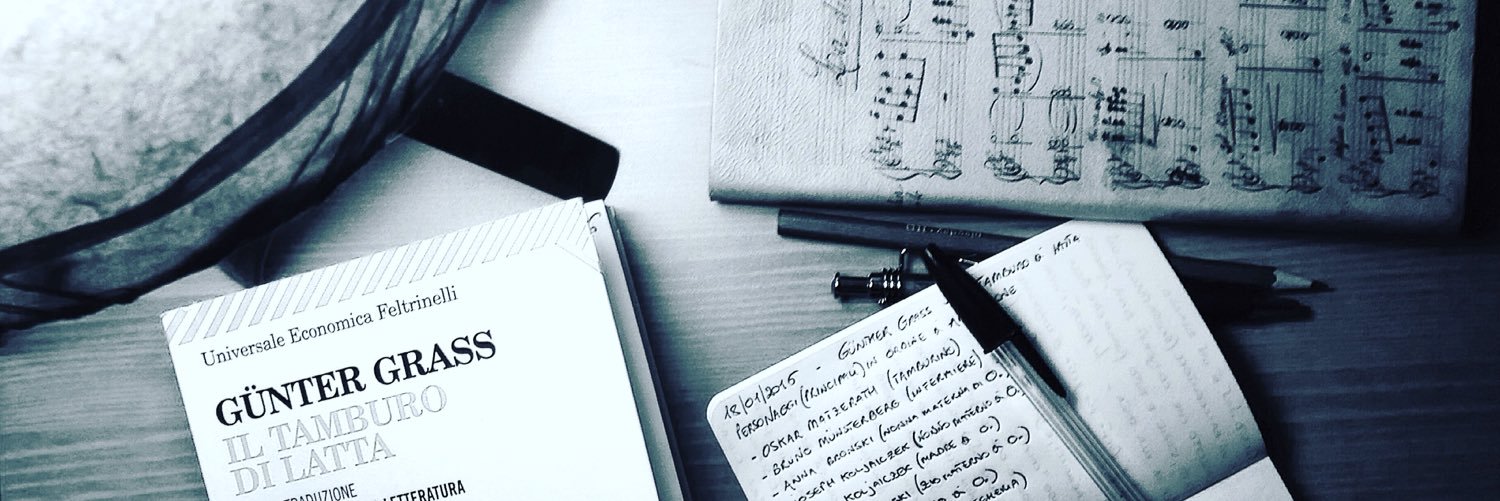 Universale Economica Feltrinelli
GÜNTER GRASS
IL TAMBURO
DI LATTA
TRADUZIONE
LETTERATURA
18/01/2015 - GÜNTER GRASS TAMBURO DI LATTA
PERSONAGGI (PRINCIPALI) IN ORDINE D
- OSKAR MATZERATH (TAMBURINO)
- BRUNO MÜNSTERBERG (INFERMIERE)
- ANNA BRONSKI (NONNA MATERNA DI O.)
JOSEPH KOLJAICZEK (NONNO MATERNO DI O.)
KOLJAICZEK (MADRE DI O.)
SKI (ZIO MATERNO DI O.)
DI O.)